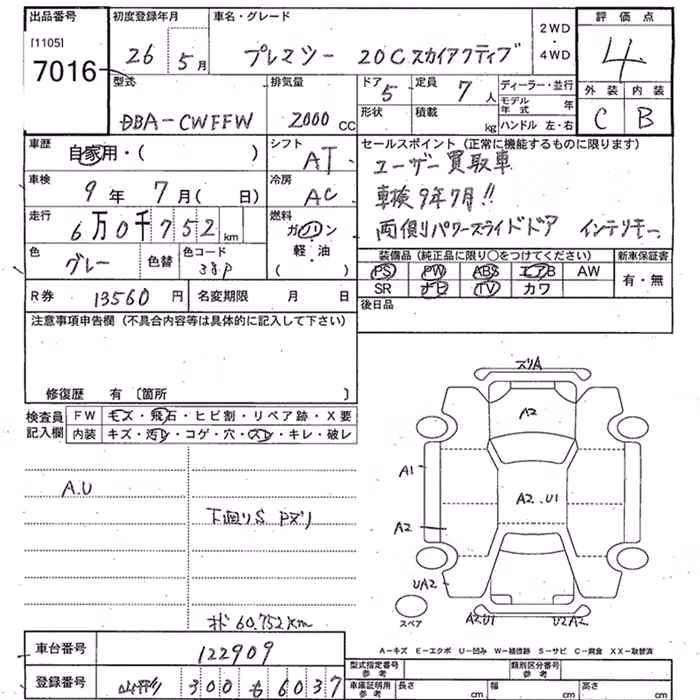 出品番号 初度登録年月 車名・グレード 2WD・4WD 評価点
[1105]
7016 26年 5月 プレマシー 20Cスカイアクティブ 4
型式 排気量 ドア 5 定員 7人 ディーラー・並行 外装 内装
モデル年式 年
DBA-CWFFW 2000cc 形状 積載 kg ハンドル 左・右 C B
車歴 自家用・( ) シフト AT セールスポイント(正常に機能するものに限ります)
ユーザー買取車
車検 9年 7月( 日) 冷房 AC 車検9年7月!!
走行 6万0千752km 燃料 ガソリン 軽・油 ( ) 両側パワースライドドア インテリキー、
色 グレー 色替 色コード 38P
装備品(純正品に限り○をつけてください) 新車保証書
PS PW ABS エアB AW 有・無
SR ナビ TV カワ
R券 13560円 名変期限 月 日 後日品
注意事項申告欄(不具合内容等は具体的に記入して下さい)
修復歴 有〔箇所 〕
検査員記入欄 FW キズ・飛石・ヒビ割・リペア跡・X要
内装 キズ・汚レ・コゲ・穴・スレ・キレ・破レ
A.U
下回りS Pズリ
メーター 60.752km
スリA
A2
A1
A2.U1
A2
UA2
スペア
A2U1 U2A2
A-キズ E-エクボ U-凹み W-補修跡 S-サビ C-腐食 XX-取替済
車台番号 122909 型式指定番号 参考 類別区分番号 参考
登録番号 山形 300 も 6037 車庫証明用 参考 長さ cm 幅 cm 高さ cm